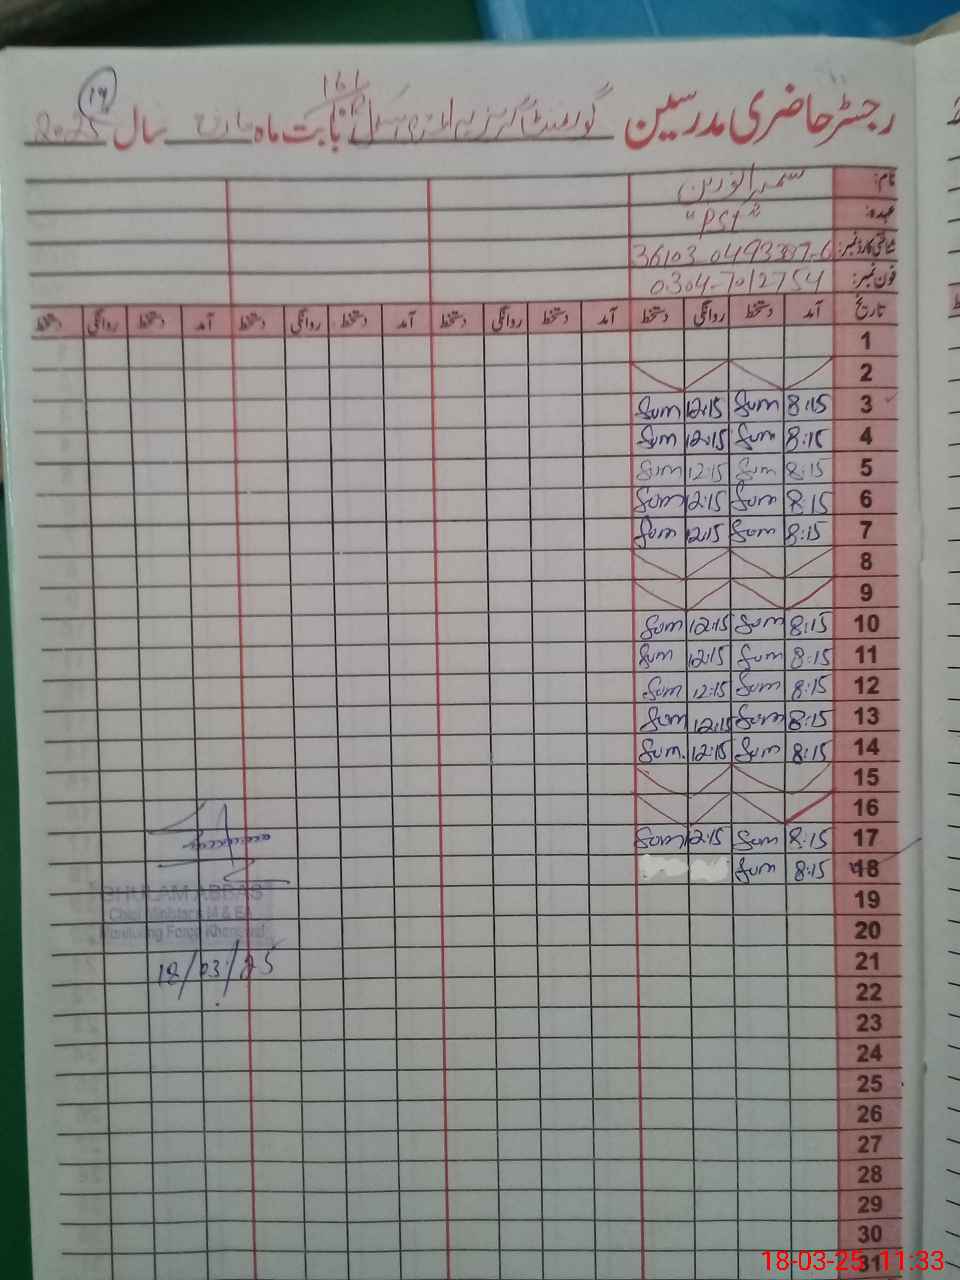 19
161
رجسٹر حاضری مدرسین گورنمنٹ گرلز پرائمری سکول بابت ماہ مارچ سال 2025
نام:
عہدہ: "PST"
شناختی کارڈ نمبر:
فون نمبر: 0304-7012754
تاریخ آمد دستخط روانگی دستخط آمد دستخط روانگی دستخط آمد دستخط روانگی دستخط آمد دستخط روانگی دستخط
1
2
3 8:15 Sum 12:15 Sum
4 8:15 Sum 12:15 Sum
5 8:15 Sum 12:15 Sum
6 8:15 Sum 12:15 Sum
7 8:15 Sum 12:15 Sum
8
9
10 8:15 Sum 12:15 Sum
11 8:15 Sum 12:15 Sum
12 8:15 Sum 12:15 Sum
13 8:15 Sum 12:15 Sum
14 8:15 Sum 12:15 Sum
15
16
17 8:15 Sum 12:15 Sum
18 8:15 Sum
19
20
21
22
23
24
25
26
27
28
29
30
31
GHULAM ABBAS
Chief Minister's M & EA
Monitoring Force Khanewal
18/03/25
18-03-25 11:33